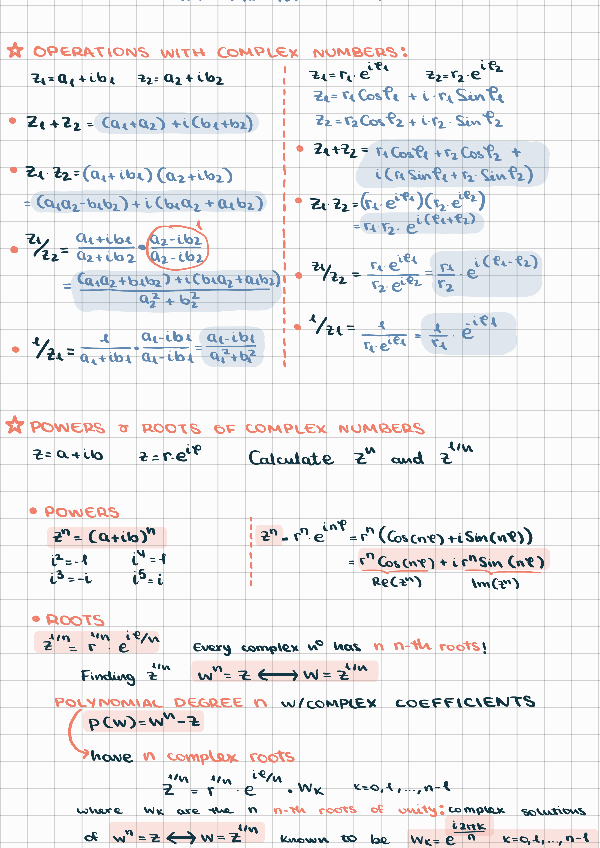 ☆ OPERATIONS WITH COMPLEX NUMBERS:
z₁=a₁+ib₁ z₂=a₂+ib₂
• z₁+z₂ = (a₁+a₂)+i(b₁+b₂)
• z₁·z₂=(a₁+ib₁)(a₂+ib₂)
=(a₁a₂-b₁b₂)+i(b₁a₂+a₁b₂)
• z₁/z₂ = (a₁+ib₁)/(a₂+ib₂) • (a₂-ib₂)/(a₂-ib₂) 1
= ((a₁a₂+b₁b₂)+i(b₁a₂+a₁b₂))/(a₂²+b₂²)
• 1/z₁ = 1/(a₁+ib₁) • (a₁-ib₁)/(a₁-ib₁) = (a₁-ib₁)/(a₁²+b₁²)
z₁=r₁·e^(iφ₁) z₂=r₂·e^(iφ₂)
z₁=r₁Cosφ₁ + i·r₁Sinφ₁
z₂=r₂Cosφ₂ + i·r₂·Sinφ₂
• z₁+z₂ = r₁Cosφ₁+r₂Cosφ₂ +
i(r₁Sinφ₁+r₂·Sinφ₂)
• z₁·z₂=(r₁·e^(iφ₁))(r₂·e^(iφ₂))
=r₁·r₂·e^(i(φ₁+φ₂))
• z₁/z₂ = (r₁·e^(iφ₁))/(r₂·e^(iφ₂)) = r₁/r₂ · e^(i(φ₁-φ₂))
• 1/z₁ = 1/(r₁·e^(iφ₁)) = 1/r₁ · e^(-iφ₁)
☆ POWERS & ROOTS OF COMPLEX NUMBERS
z=a+ib z=r·e^(iφ) Calculate zⁿ and z^(1/n)
• POWERS
zⁿ=(a+ib)ⁿ
i²=-1 i⁴=1
i³=-i i⁵=i
zⁿ=rⁿ·e^(inφ)=rⁿ(Cos(nφ)+iSin(nφ))
=rⁿCos(nφ)+irⁿSin(nφ)
Re(zⁿ) Im(zⁿ)
• ROOTS
z^(1/n) = r^(1/n) · e^(iφ/n) Every complex nº has n n-th roots!
Finding z^(1/n) wⁿ=z ⟷ w=z^(1/n)
POLYNOMIAL DEGREE n W/COMPLEX COEFFICIENTS
p(w)=wⁿ-z
have n complex roots
z^(1/n) = r^(1/n) · e^(iφ/n) • wₖ k=0,1,...,n-1
where wₖ are the n n-th roots of unity: complex solutions
of wⁿ=z ⟷ w=z^(1/n) known to be wₖ=e^(i2πk/n) k=0,1,...,n-1